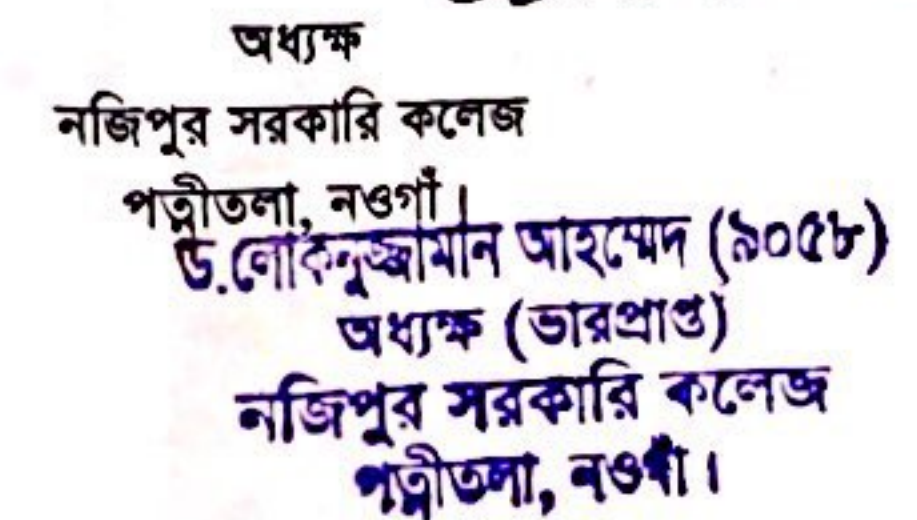 অধ্যক্ষ
নজিপুর সরকারি কলেজ
পত্নীতলা, নওগাঁ।
ড.লোকনুজ্জামান আহম্মেদ (৯০৫৮)
অধ্যক্ষ (ভারপ্রাপ্ত)
নজিপুর সরকারি কলেজ
পত্নীতলা, নওগাঁ।